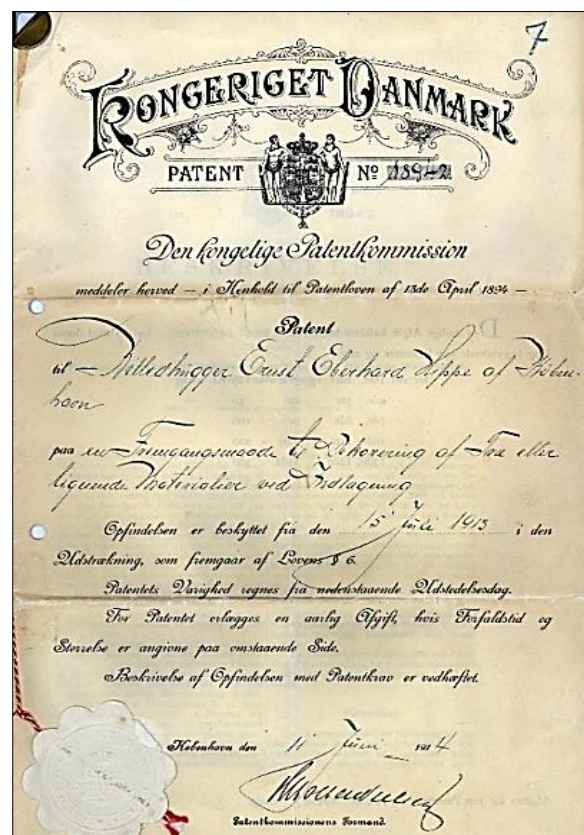 7
KONGERIGET DANMARK
PATENT No 18942
Den kongelige Patentkommission
meddeler herved — i Henhold til Patentloven af 13de April 1894 —
Patent
til Billedhugger Ernst Eberhard Hippe af Køben-
havn
paa en Fremgangsmaade til Dekorering af Træ eller
lignende Materialier ved Indlægning
Opfindelsen er beskyttet fra den 15 Juli 1913 i den
Udstrækning, som fremgaar af Lovens § 6.
Patentets Varighed regnes fra nedenstaaende Udstedelsesdag.
For Patentet erlægges en aarlig Afgift, hvis Forfaldstid og
Størrelse er angivne paa omstaaende Side.
Beskrivelse af Opfindelsen med Patentkrav er vedhæftet.
København den 11 Juni 1914
Patentkommissionens Formand.